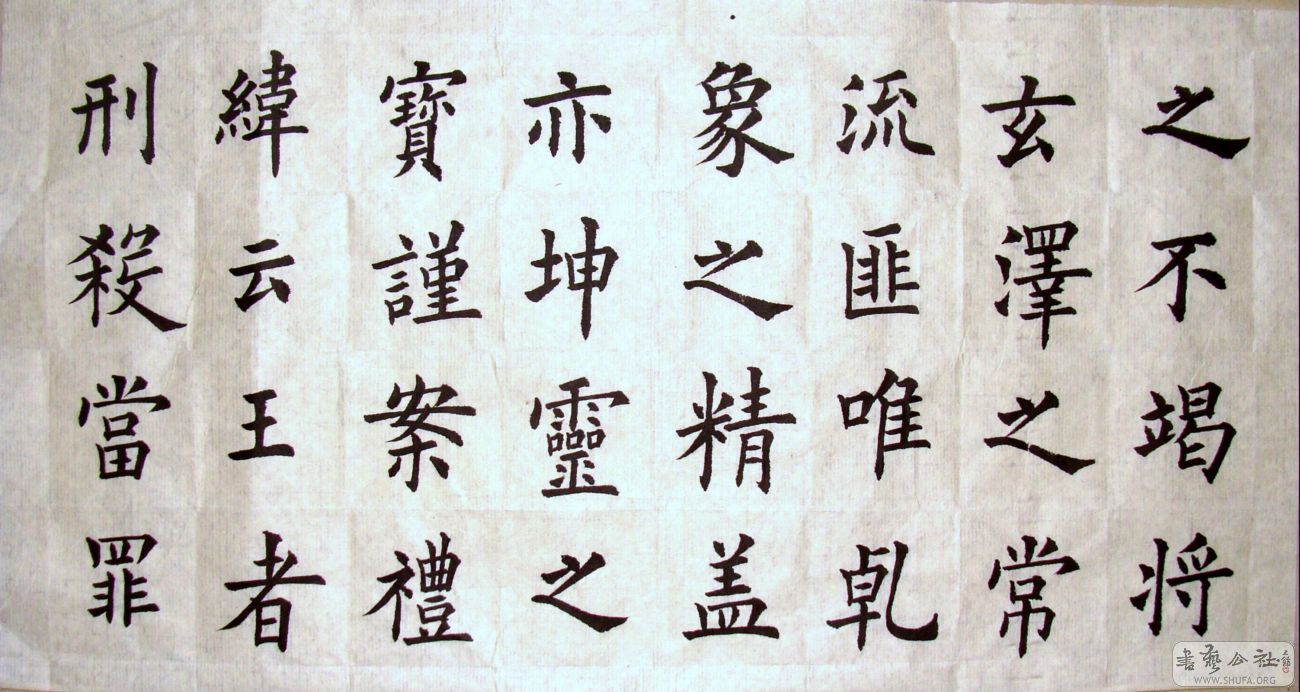 之不竭将
玄澤之常
流匪唯乹
象之精盖
亦坤靈之
寶謹案禮
緯云王者
刑殺當罪
書藝公社
WWW.SHUFA.ORG